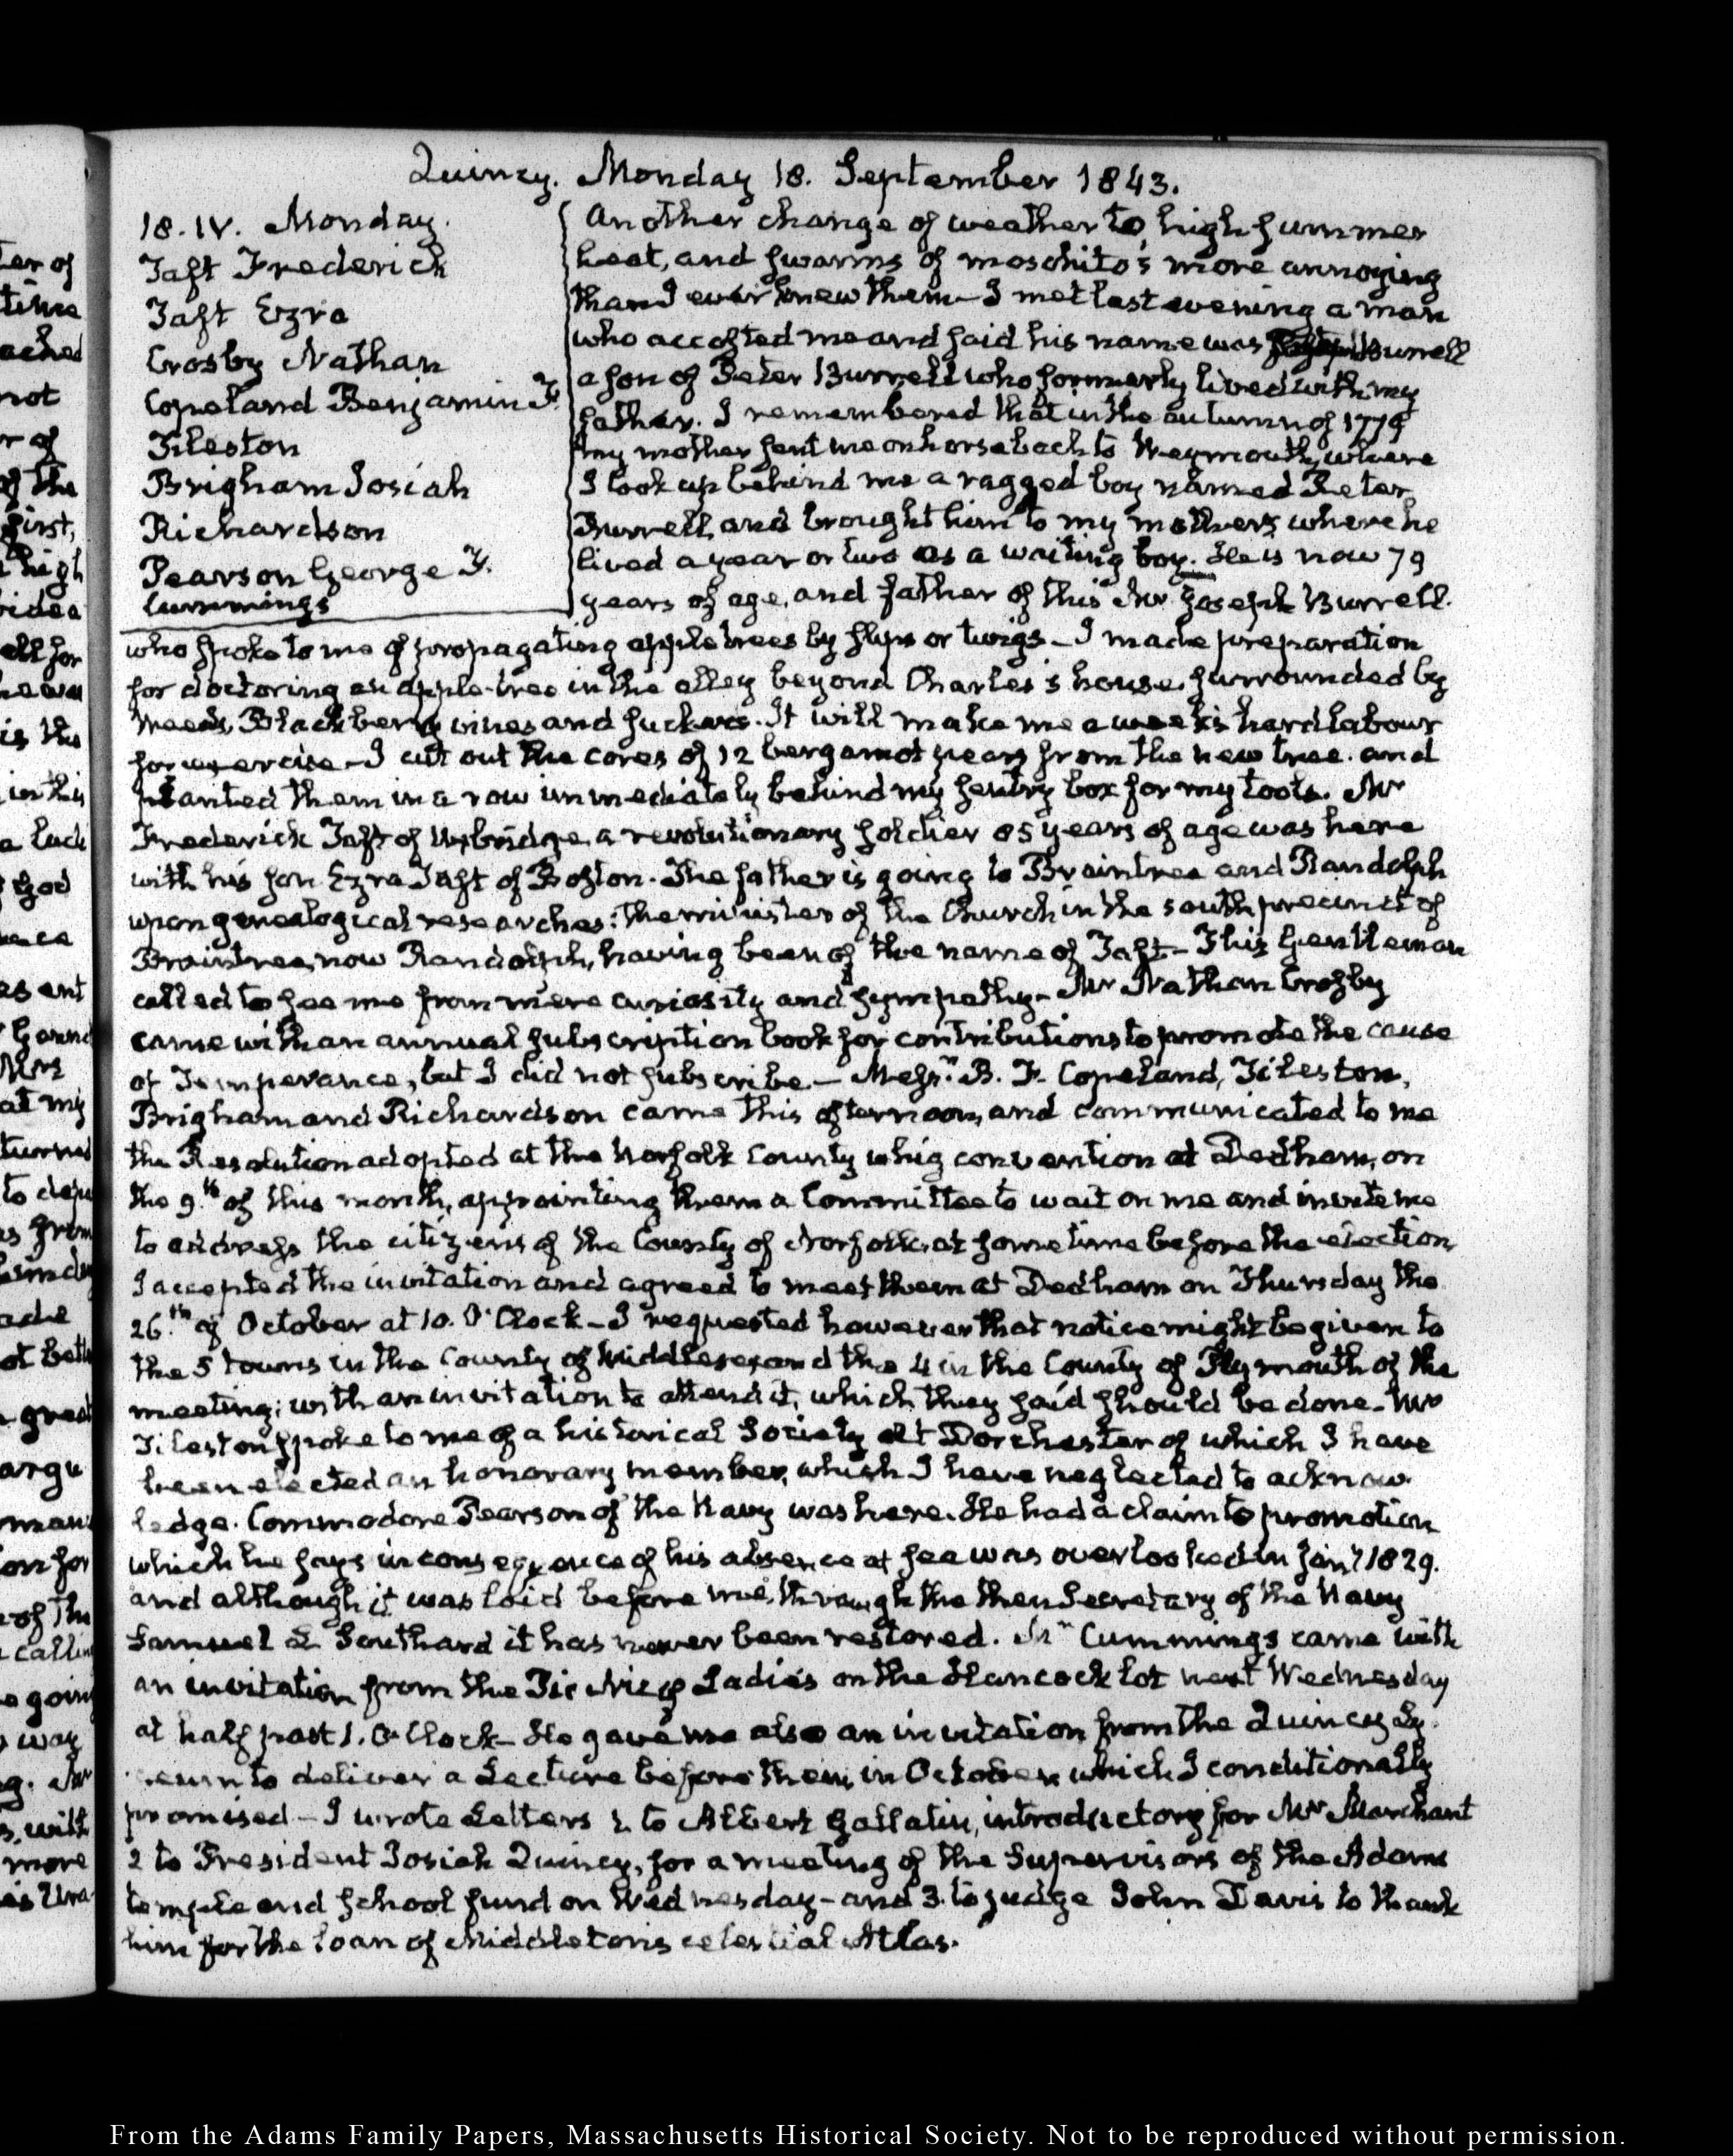 Quincy. Monday 18. September 1843.
18. IV. Monday.
Taft Frederick
Taft Ezra
Crosby Nathan
Copeland Benjamin F.
Tileston
Brigham Josiah
Richardson
Pearson George F.
Cummings
Another change of weather to high summer
heat, and swarms of moschito's more annoying
than I ever knew them — I met last evening a man
who accosted me and said his name was Burrell
a son of Peter Burrell who formerly lived with my
father. I remembered that in the autumn of 1779
my mother sent me on horseback to Weymouth, where
I took up behind me a ragged boy named Peter
Burrell, and brought him to my mothers where he
lived a year or two as a waiting boy. He is now 79
years of age, and father of this Mr Joseph Burrell.
who spoke to me of propagating apple trees by slips or twigs — I made preparation
for doctoring an apple-tree in the alley beyond Charles's house, surrounded by
weeds, Blackberry vines and suckers. It will make me a week's hard labour
for exercise — I cut out the cores of 12 bergamot pears from the new tree. and
planted them in a row immediately behind my sentry box for my tools. Mr
Frederick Taft of Uxbridge, a revolutionary soldier 85 years of age was here
with his son Ezra Taft of Boston. The father is going to Braintree and Randolph
upon genealogical researches: the minister of the Church in the south precinct of
Braintree, now Randolph, having been of the name of Taft — This Gentleman
called to see me from mere curiosity and sympathy — Mr Nathan Crosby
came with an annual subscription book for contributions to promote the cause
of Temperance, but I did not subscribe. — Messrs. B. F. Copeland, Tileston,
Brigham and Richardson came this afternoon, and communicated to me
the Resolution adopted at the Norfolk County whig convention at Dedham, on
the 9.th of this month, appointing them a Committee to wait on me and invite me
to address the citizens of the County of Norfolk, at some time before the election,
I accepted the invitation and agreed to meet them at Dedham on Thursday the
26.th of October at 10. O'Clock — I requested however that notice might be given to
the 5 towns in the County of Middlesex, and the 4 in the County of Plymouth of the
meeting; with an invitation to attend it, which they said should be done — Mr
Tileston spoke to me of a historical Society at Dorchester of which I have
been elected an honorary member, which I have neglected to acknow
ledge. Commodore Pearson of the Navy was here. He had a claim to promotion
which he says in consequence of his absence at sea was overlooked in Jany 1829.
and although it was laid before me, through the then Secretary of the Navy
Samuel L Southard it has never been restored. Mr Cummings came with
an invitation from the Pic Nic of Ladies on the Hancock lot next Wednesday
at half past 1. O'Clock — He gave me also an invitation from the Quincy Ly
ceum to deliver a Lecture before them, in October which I conditionally
promised — I wrote Letters 1. to Albert Gallatin, introductory for Mr Marchant
2 to President Josiah Quincy, for a meeting of the Supervisors of the Adams
temple and school fund on Wednesday — and 3. to Judge John Davis to thank
him for the loan of Middleton's celestial Atlas.
From the Adams Family Papers, Massachusetts Historical Society. Not to be reproduced without permission.